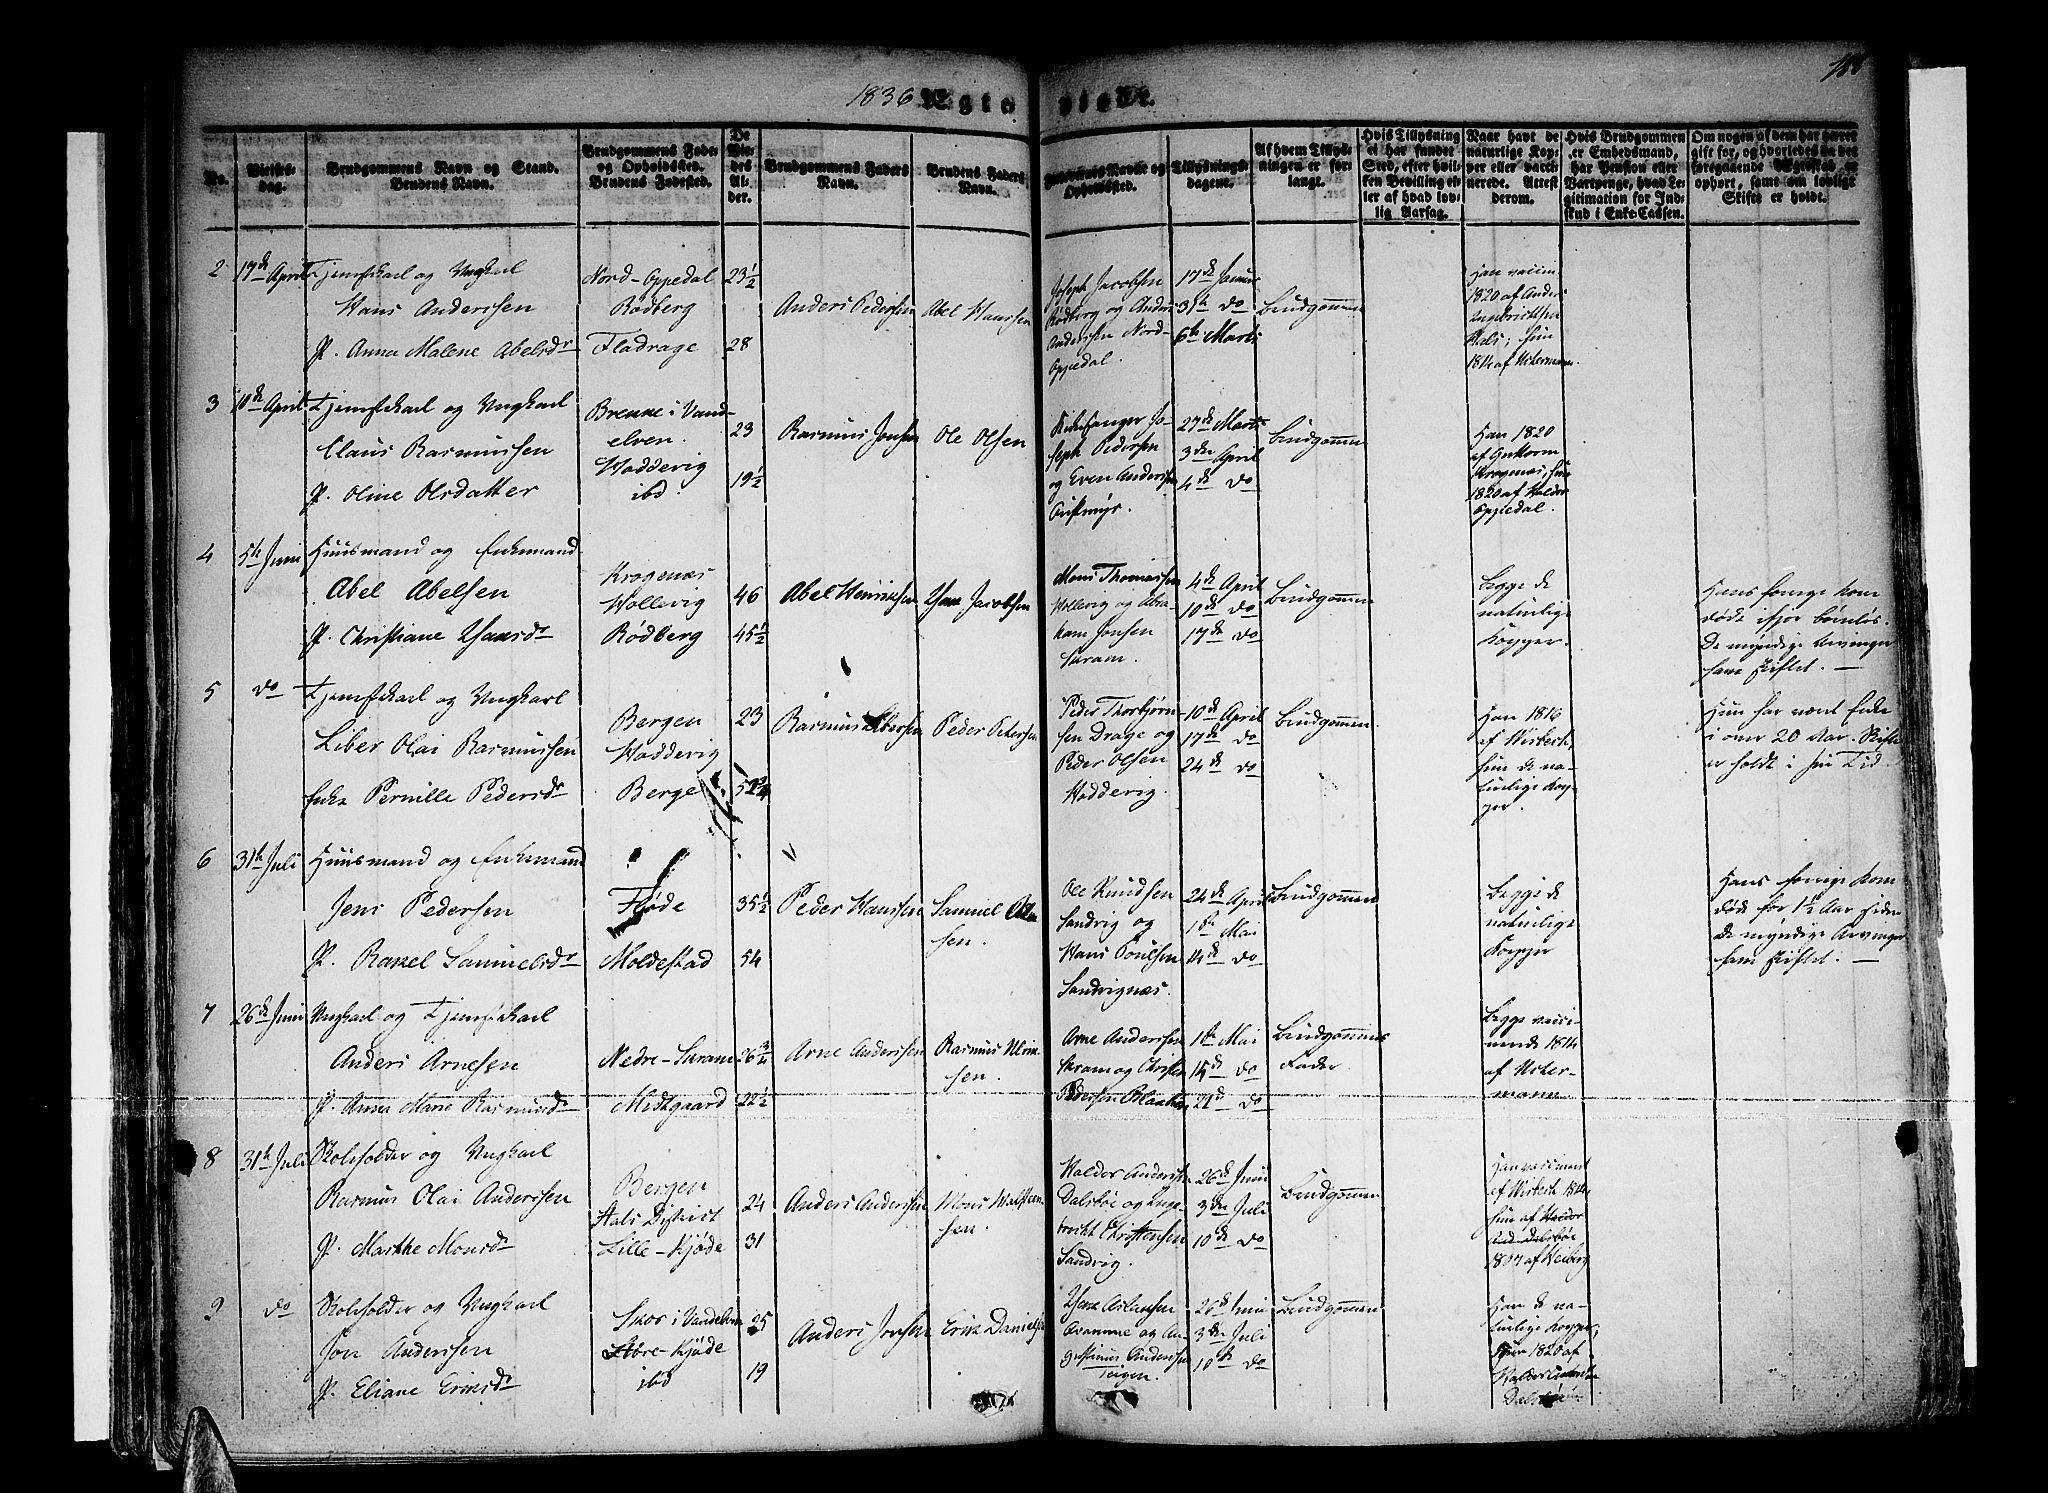 1836 Ægte viede.
No.
Vielses-
dag.
Brudgommens Navn og Stand.
Brudens Navn.
Brudgommens Føde-
og Opholdssted.
Brudens Fødested.
De
Vie-
des
Al-
der.
Brudgommens Faders
Navn.
Brudens Faders
Navn.
Forlovernes Navne og
Opholdssted.
Tillysnings-
dagene.
Af hvem Tillys-
ningen er for-
langt.
Hvis Tillysning
ei har fundet
Sted, efter hvil-
ken Bevilling el-
ler af hvad lov-
lig Aarsag.
Naar havt de
naturlige Kop-
per eller vacci-
nerede. Attest
derom.
Hvis Brudgommen
er Embedsmand,
har Pension eller
Vartpenge, hvad Le-
gitimation for Ind-
skud i Enke-Cassen.
Om nogen af dem har været
gift før, og hvorledes da det
foregaaende Ægteskab er
ophørt, samt om lovligt
Skifte er holdt.
2
17de April
Tjenestekarl og Ungkarl
Hans Anderssen
P. Anna Malene Abelsdr
Nord-Oppedal
Rødberg
Fladrage
23½
28
Anders Pederssen
Abel Hanssen
Joseph Jacobsen
Rødberg og Anders
Anderssen Nord-
Oppedal.
17de Januar
31te do
6te Marts
Brudgommen
Han vaccin.
1820 af Anders
Ingebrichtsen
Hals; hun
1814 af Uchermann
3
10de April
Tjenestekarl og Ungkarl
Claus Rasmussen
P. Oline Olsdatter
Brekke i Vand-
elven.
Hodderig
ibd.
23
19½
Rasmus Jonsen
Ole Olsen
Kirkesanger Jo-
seph Pedersen
og Even Anderssen
27de Marts
3die April
4de do
Brudgommen
Han 1820
af Guttorm
Krogenæs, hun
1820 af Halder
Oppedal.
4
5te Juni
Huusmand og Enkemand
Abel Abelsen
P. Christiane Hansdr
Krogenæs
Hollevig
Rødberg
46
45½
Abel Henricksen
Hans Jacobsen
Mons Thomassen
Hollevig og Abra-
ham Jonsen
Særam.
4de April
10de do
17de do
Brudgommen
Begge de
naturlige
Kopper.
Hans forrige Kone
døde ifjor børnløs.
De myndige Arvinger
have skiftet. —
5
do
Tjenestekarl og Ungkarl
Liber Olai Rasmussen
Enke Pernille Pedersdr
Bergen
Hodderig
Berge
23
52¾
Rasmus Libersen
Peder Petersen
Peder Thorbjørn-
sen Drage og
Peder Olsen
Hodderig.
10de April
17de do
24de do
Brudgommen
Han 1816
af Wisbech,
hun de na-
turlige Kop-
per.
Hun har været Enke
i over 20 Aar. Skifte
er holdt i sin Tid.
6
31te Juli
Huusmand og Enkemand
Jens Pedersen
P. Rakel Samuelsdr
Fløde
Moldestad
35½
54
Peder Hanssen
Samuel Olen-
sen.
Ole Knudsen
Sandvig og
Hans Poulsen
Sandvignæs.
24de April
1ste Mai
14de do
Brudgommen
Begge de
naturlige
Kopper
Hans forrige Kone
døde for 1½ Aar siden
De myndige Arvinger
have skiftet. —
7
26de Juni
Ungkarl og Tjenestekarl
Anders Arnesen
P. Anna Marie Rasmusdr
Nedre-Særam
Midtgaard
26¾
22½
Arne Anderssen
Rasmus Ulrik-
sen.
Arne Anderssen
Særam og Christen
Pedersen
1ste Mai
15de do
21de do
Brudgommens
Fader.
Begge vacci-
nerede 1814
af Ucher-
mann
8
31te Juli
Skoleholder og Ungkarl
Rasmus Olai Anderssen
P. Marthe Monsdr
Bergen
Hals District
Lille-Kjøde
24
31
Anders Anderssen
Mons
sen.
Halder Anderssen
Dalsbøe og Inge-
brecht Christensen
Sandvig.
26de Juni
3die Juli
10de do
Brudgommen
Han vaccineret
af Wisbech 1814,
hun af Halder
Dalsbøe
1807 af Heiberg
9
do
Skoleholder og Ungkarl
Jon Anderssen
P. Eliane Eriksdr
Skor i Vandelven
Store-Kjøde
ibd
25
19
Anders Jonsen
Erik Danielsen
Hans Aslaksen
Aramme og An-
Anderssen
Teigen.
26de Juni
3die Juli
10de do
Brudgommen
Han de na-
turlige Kopper,
Hun 1820 af
Halder
Dalsbøe